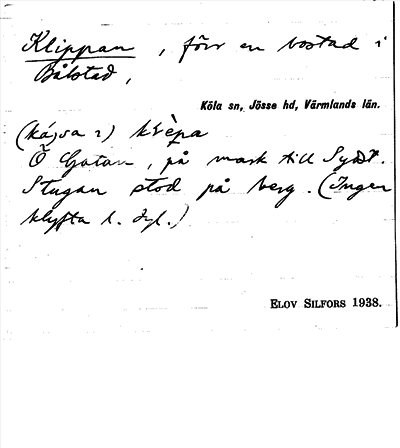 Klippan, förr en bostad i
Bålstad,
Köla sn, Jösse hd, Värmlands län.
(kájsa 2) klèpa
Ö Gatan, på mark till Sydst.
Stugan stod på berg. (Ingen
klyfta l. dyl.)
ELOV SILFORS 1938.